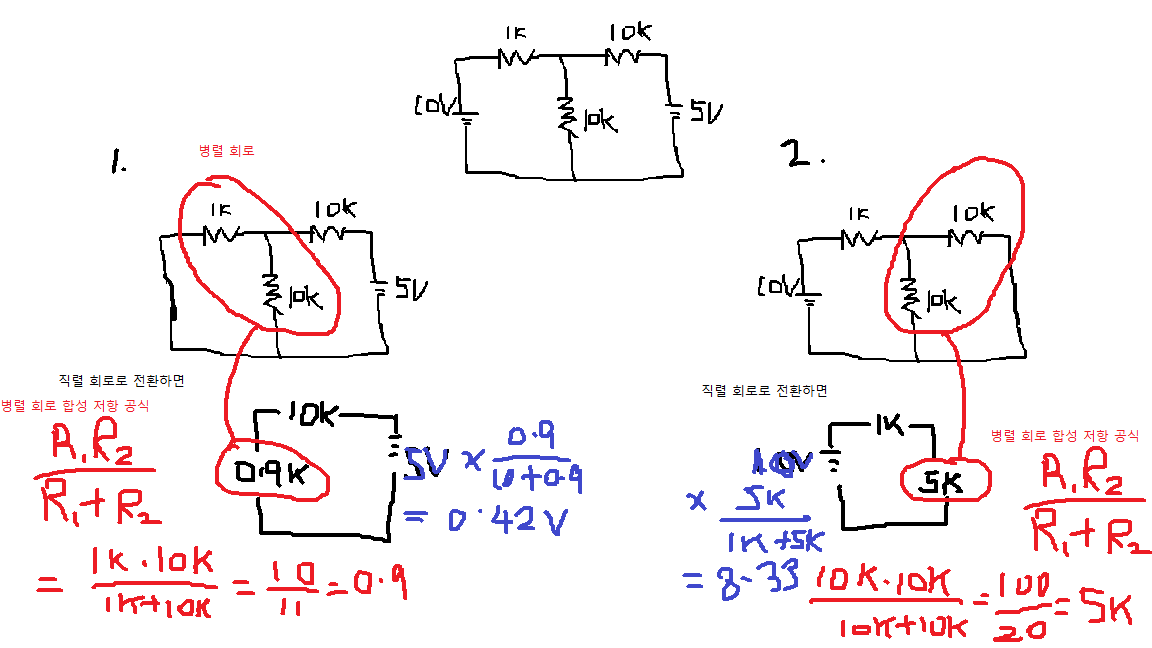 1K
10K
10V
10K
5V
1.
병렬 회로
1K
10K
10K
5V
직렬 회로로 전환하면
병렬 회로 합성 저항 공식
R₁R₂
R₁ + R₂
= 1K·10K
1K+10K
= 10
11
= 0.9
10K
0.9K
5V × 0.9
10+0.9
= 0.42V
2.
1K
10K
10V
10K
직렬 회로로 전환하면
1K
10V
5K
× 5K
1K+5K
= 8.33
병렬 회로 합성 저항 공식
R₁R₂
R₁ + R₂
10K·10K
10K+10K
= 100
20
= 5K